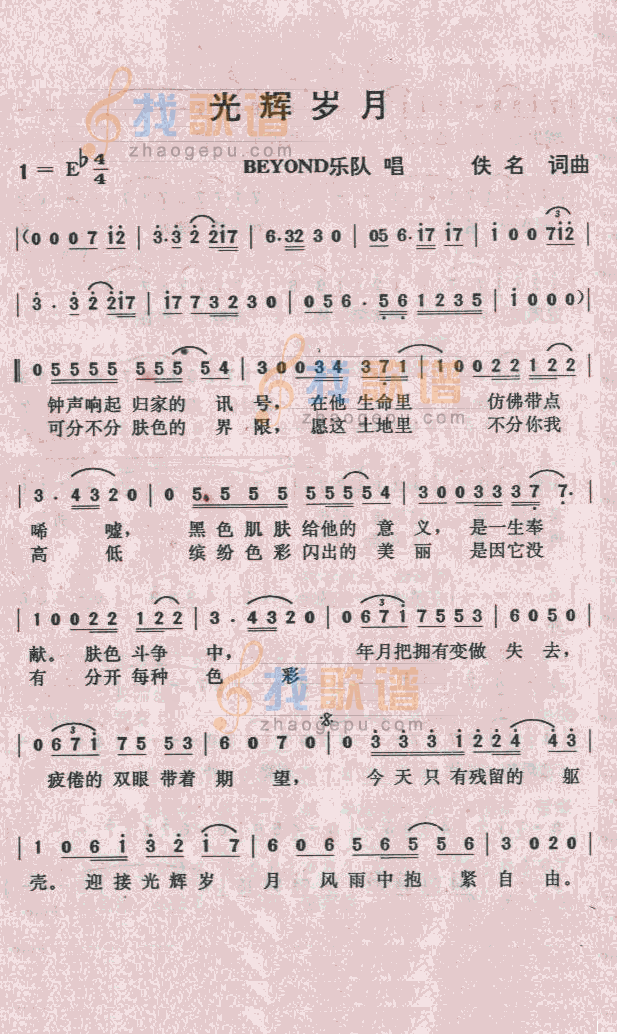 光辉岁月
1 = E♭ 4/4 BEYOND乐队 唱 佚名 词曲
|(0 0 0 7 i2 | 3·3 2 2i7 | 6·32 3 0 | 05 6·i7 i7 | i 0 0 7i2 |
3
3·3 2 2i7 | i7 7 3 2 3 0 | 0 5 6·5 6 1 2 3 5 | i 0 0 0)|
0 5 5 5 5 5 5 5 5 5 4 | 3 0 0 3 4 3 7 1 | 1 0 0 2 2 1 2 2 |
钟声响起 归家的 讯 号， 在他 生命里 仿佛带点
可分不分 肤色的 界 限， 愿这 土地里 不分你我
3·4 3 2 0 | 0 5 5 5 5 5 5 5 5 4 | 3 0 0 3 3 3 7 7·
唏 嘘， 黑色肌肤给他的 意 义， 是一生奉
高 低 缤纷色彩闪出的 美 丽 是因它没
1 0 0 2 2 1 2 2 | 3·4 3 2 0 | 0 6 7 i 7 5 5 3 | 6 0 5 0 |
3
献。 肤色 斗争 中， 年月把拥有变做 失 去，
有 分开每种 色 彩
找歌谱
zhaogepu.com
0 6 7 i 7 5 5 3 | 6 0 7 0 | 0 3 3 3 i 2 2 4 4 3 |
3
疲倦的 双眼 带着 期 望， 今天只有残留的 躯
1 0 6 i 3 2 i 7 | 6 0 6 5 6 5 5 6 | 3 0 2 0 |
壳。 迎接光辉岁 月 风雨中抱 紧自由。